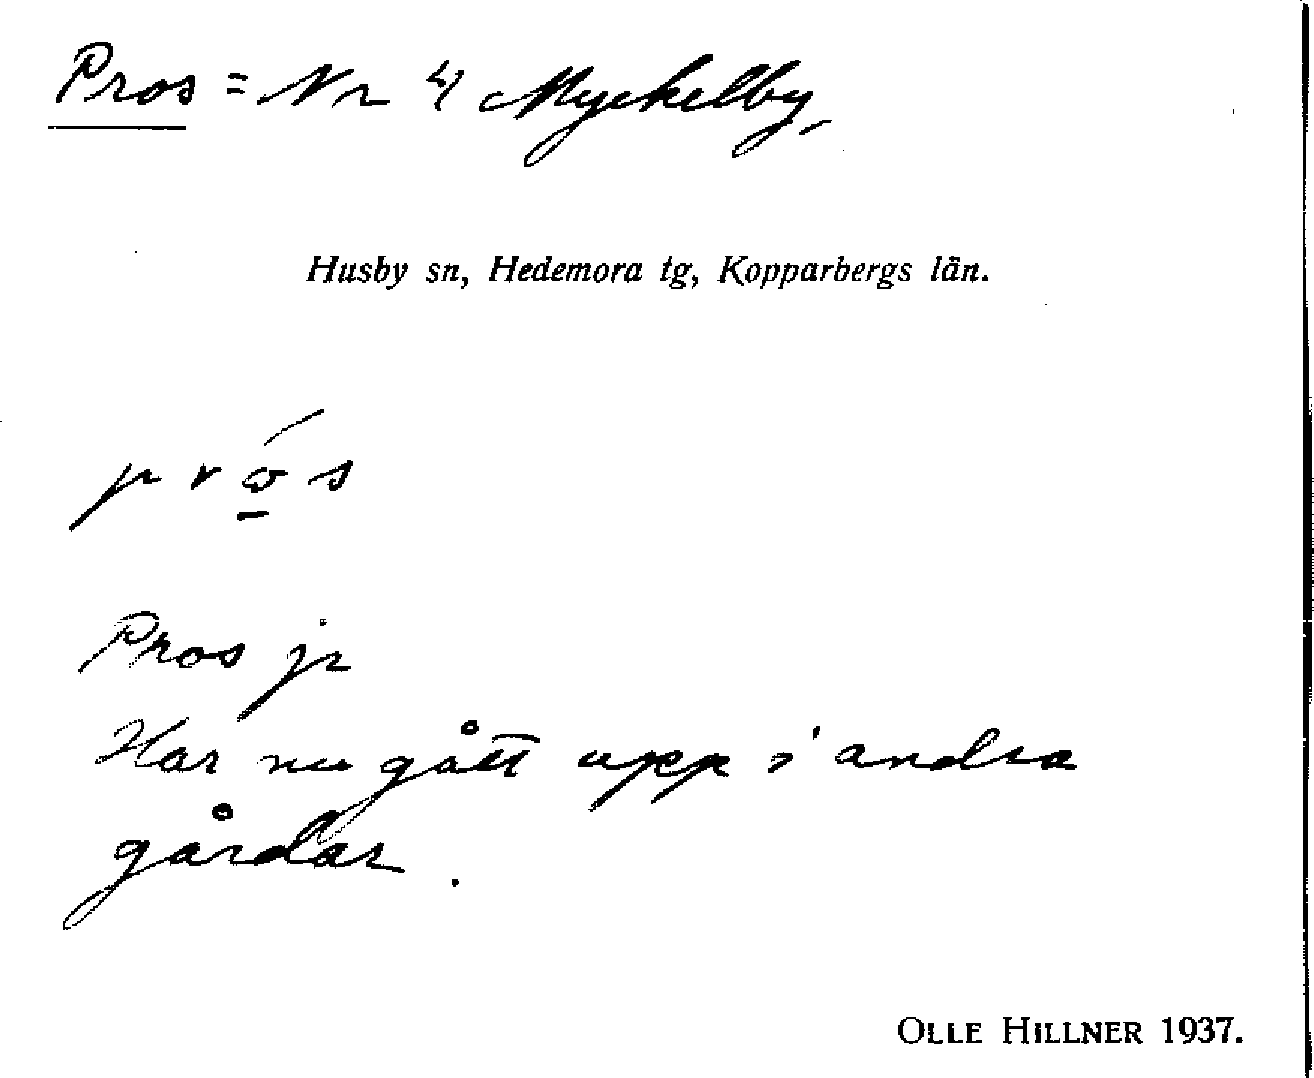 Pros = Nr 4 Myckelby,
Husby sn, Hedemora tg, Kopparbergs län.
prǫ́s
Pros jr
Har nu gått upp i andra
gårdar.
OLLE HILLNER 1937.